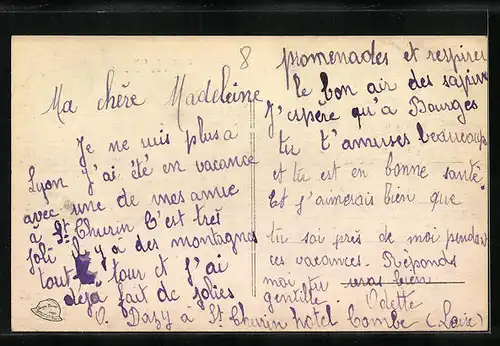 8
Ma chère Madeleine
Je ne suis plus a
Lyon j'ai été en vacance
avec une de mes amie
à St Thurin C'est trés
joli il y a des montagnes
tout à tour et j'ai
déjà fait de jolies
promenades et respirer
le bon air des sapin
J'espère qu'à Bourges
tu t'amuses beaucoup
et tu est en bonne santé
Et j'aimerais bien que
tu soi près de moi pendant
ces vacances. Réponds
moi tu seras bien
gentille. Odette
O. Dazy à St Thurin hotel Combe (Loire)